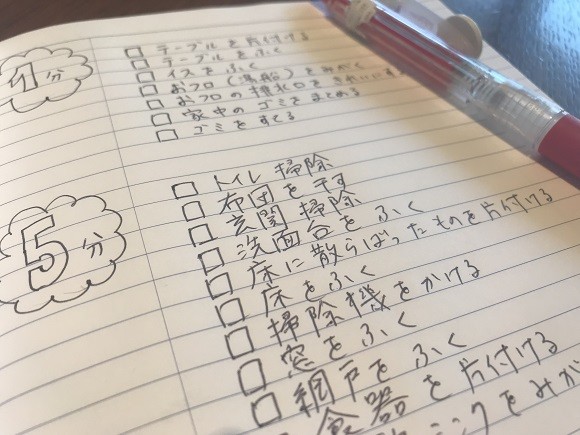 1分
テーブルを片付ける
テーブルをふく
イスをふく
おフロ(湯船)をみがく
おフロの排水口をきれいにする
家中のゴミをまとめる
ゴミをすてる
5分
トイレ掃除
布団を干す
玄関掃除
洗面台をふく
床に散らばったものを片付ける
床をふく
掃除機をかける
窓をふく
網戸をふく
食器を片付ける
をみが